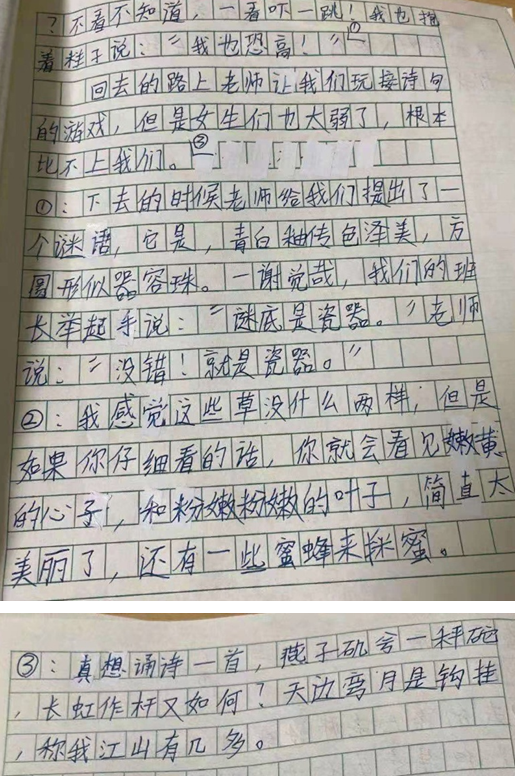 ？不看不知道，一看吓一跳！①我也抱
着柱子说：〃我也恐高！〃
回去的路上老师让我们玩接诗句
的游戏，但是女生们也太弱了，根本
比不上我们。③
①：下去的时候老师给我们提出了一
个谜语，它是，青白釉传色泽美，方
圆形似器容珠。一谢觉哉，我们的班
长举起手说：〃谜底是瓷器。〃老师
说：〃没错！就是瓷器。〃
②：我感觉这些草没什么两样，但是
如果你仔细看的话，你就会看见嫩黄
的心子，和粉嫩粉嫩的叶子，简直太
美丽了，还有一些蜜蜂来采蜜。
③：真想诵诗一首，燕子矶兮一秤砣
，长虹作杆又如何？天边弯月是钩挂
，称我江山有几多。